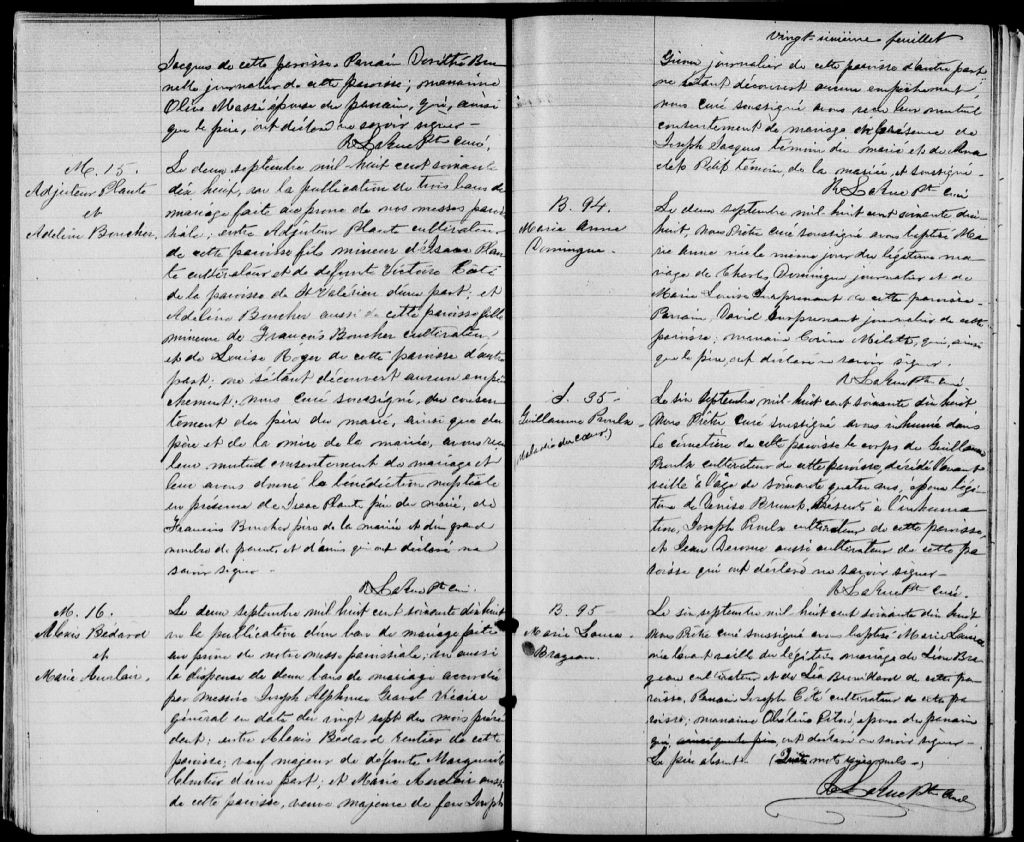 Jacques de cette paroisse. Parrain Dorithé Bru-
nelle journalier de cette paroisse; marraine
Olive Massé épouse du parrain, qui, ainsi
que le père, ont déclaré ne savoir signer -
Ptre curé.
M. 15.
Adjuteur Plante
et
Adeline Boucher.
Le deux septembre mil huit cent soixante
dix huit, vu la publication de trois bans de
mariage faite au prone de nos messes parois-
siale; entre Adjuteur Plante cultivateur
de cette paroisse fils mineur d'Isaac Plan-
te cultivateur et de défunte Victoire Coté
de la paroisse de St Valérien d'une part; et
Adeline Boucher aussi de cette paroisse fille
mineure de François Boucher cultivateur,
et de Louise Roger de cette paroisse d'autre
part; ne s'étant découvert aucun empê-
chement; nous curé soussigné, du consen-
tement du père du marié, ainsi que du
père et de la mère de la mariée, avons reçu
leur mutuel consentement de mariage et
leur avons donné la bénédiction nuptiale
en présence de Isaac Plante, père du marié, de
François Boucher père de la mariée et d'un grand
nombre de parents et d'amis qui ont déclaré ne
savoir signer -
Ptre curé.
M. 16.
Alexis Bédard
et
Marie Auclair.
Le deux septembre mil huit cent soixante dix huit
vu la publication d'un ban de mariage faite
au prône de notre messe paroissiale; vu aussi
la dispense de deux bans de mariage accordée
par messire Joseph Alphonse Gravel Vicaire
général en date du vingt sept du mois précé-
dent; entre Alexis Bédard rentier de cette
paroisse, veuf majeur de défunte Marguerite
Cloutier d'une part; et Marie Auclair aussi
de cette paroisse, veuve majeure de feu Joseph
Vingt sixième feuillet
journalier de cette paroisse d'autre part
ne s'étant découvert aucun empêchement;
nous curé soussigné avons reçu leur mutuel
consentement de mariage en présence de
Joseph Jacques témoin du marié et de Ana-
clet Petit témoin de la mariée, et soussigné.
Ptre curé
B. 94.
Marie Anna
Domingue.
Le deux septembre mil huit cent soixante dix
huit Nous Prêtre curé soussigné avons baptisé Ma-
rie Anne née le même jour du légitime ma-
riage de Charles Domingue journalier et de
Marie Louise Surprenant de cette paroisse.
Parrain, David Surprenant journalier de cette
paroisse; marraine Corine Milette, qui, ainsi
que le père, ont déclaré ne savoir signer.
Ptre curé.
S. 35-
Guillaume Proulx
(Maladie du cœur.)
Le six Septembre mil huit cent soixante dix huit,
Nous Prêtre curé soussigné avons inhumé dans
le cimetière de cette paroisse le corps de Guillaume
Proulx cultivateur de cette paroisse, décédé l'avant
veille à l'âge de soixante quatre ans, époux légi-
time de Denise Brunet. Présents à l'inhuma-
tion, Joseph Proulx cultivateur de cette paroisse,
et Jean Derome aussi cultivateur de cette pa-
roisse qui ont déclaré ne savoir signer -
Ptre curé.
B. 95-
Marie Laura
Brazeau.
Le six septembre mil huit cent soixante dix huit
Nous Prêtre curé soussigné avons baptisé Marie Laura
née l'avant veille du légitime mariage de Léon Bra-
zeau cultivateur et de Léa Brouillard de cette pa-
roisse. Parrain Joseph Coté cultivateur de cette pa-
roisse; marraine épouse du parrain
qui, ainsi que le père, ont déclaré ne savoir signer -
Le père absent - ( mots rayés nuls -)
Ptre curé